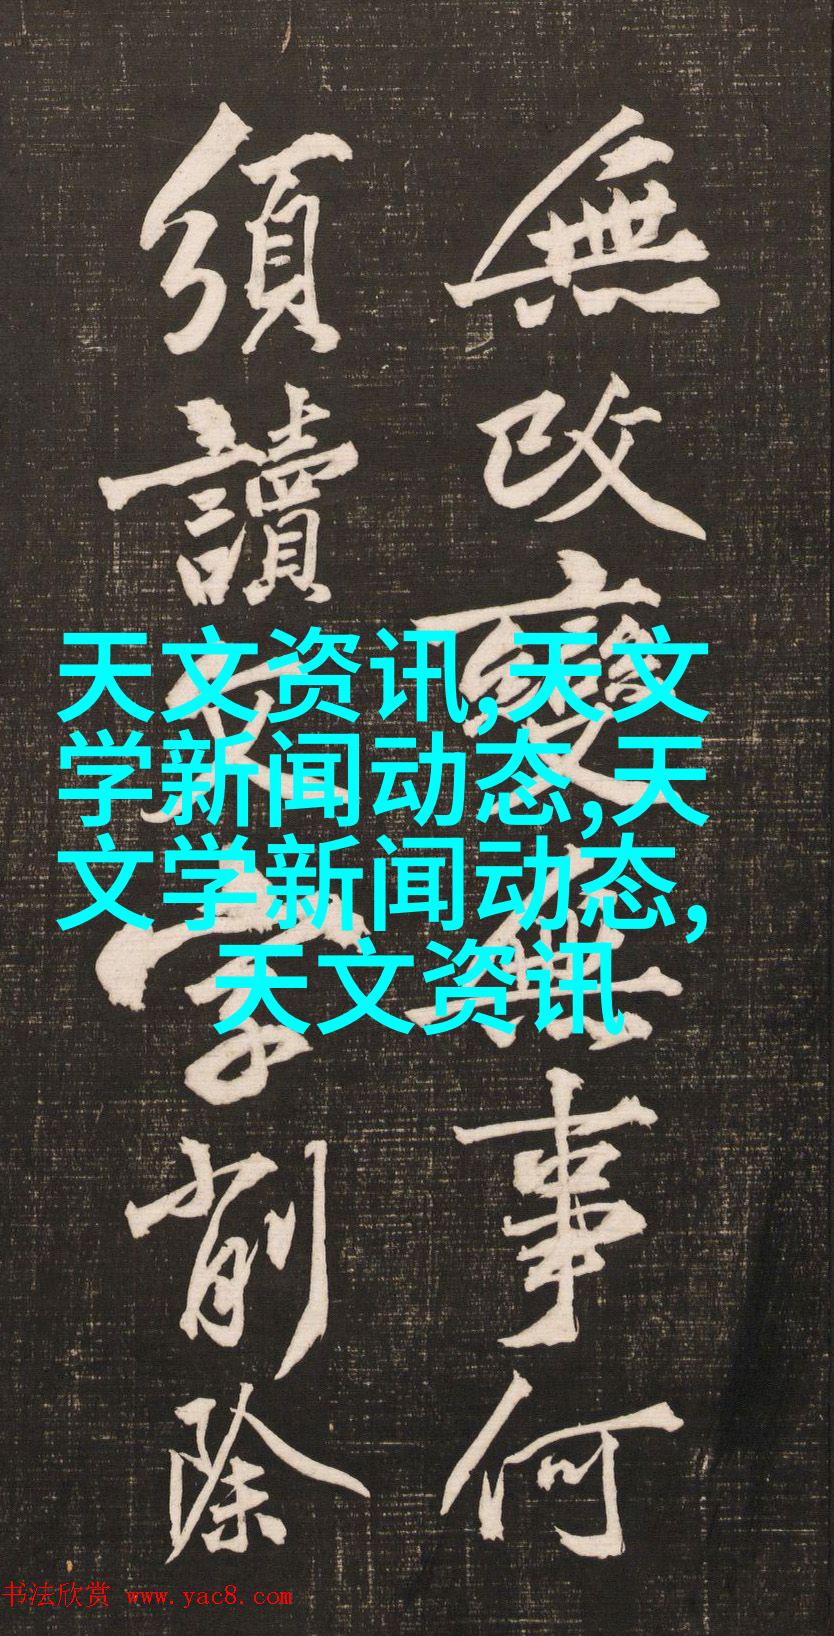 無改變無事何
須讀文字削除
天文资讯,天文
学新闻动态,天
文学新闻动态,
天文资讯
书法欣赏 www.yac8.com